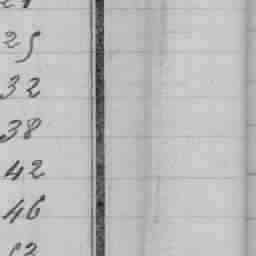 25
32
38
42
46